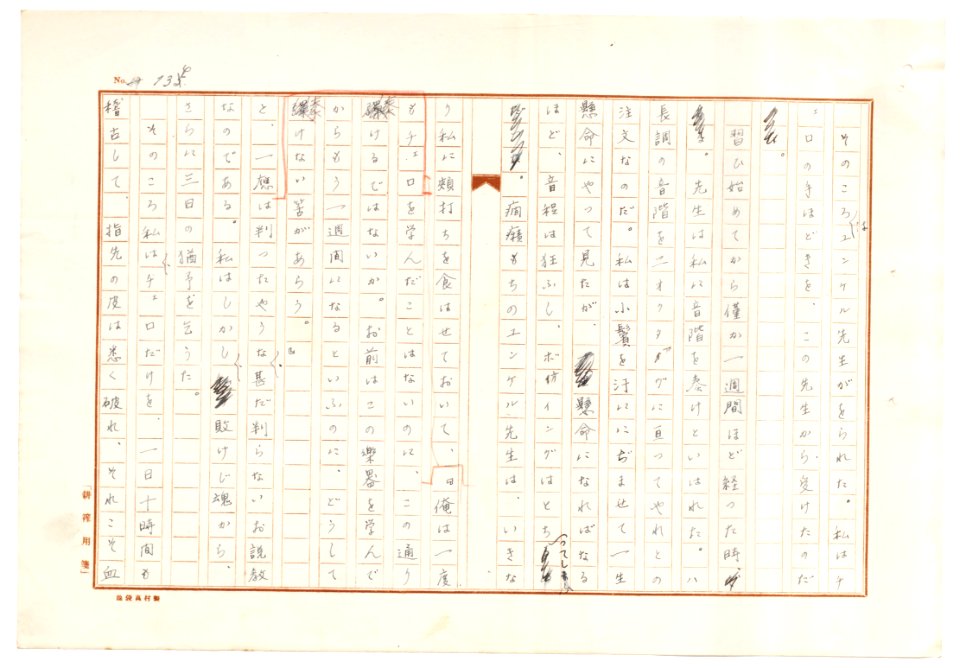 No. 135
そのころエンゲル先生がをられた。私はチ
ェロの手ほどきを、この先生から、受けたのだ
。
習ひ始めてから僅か一週間ほど経つた時、
先生は私に音階を奏けといはれた。ハ
長調の音階を二オクターヴに亘つてやれとの
注文なのだ。私は小鬢を汗ににぢませて一生
懸命にやつて見たが、懸命になればなる
ほど、音程は狂ふし、ボーイングはとちつてしまふ
。癇癪もちのエンゲル先生は、いきな
り私に頬打ちを食はせておいて、「俺は一度
もチェロを学んだことはないのに、この通り
奏けるではないか。お前はこの楽器を学んで
からもう一週間になるといふのに、どうして
奏けない筈があらう。」
と、一応は判つたやうな甚だ判らないお説教
なのである。私はしかし敗けじ魂から、
さらに三日の猶予を乞うた。
そのころ私はチェロだけを、一日十時間も
稽古して、指先の皮は悉く破れ、それこそ血